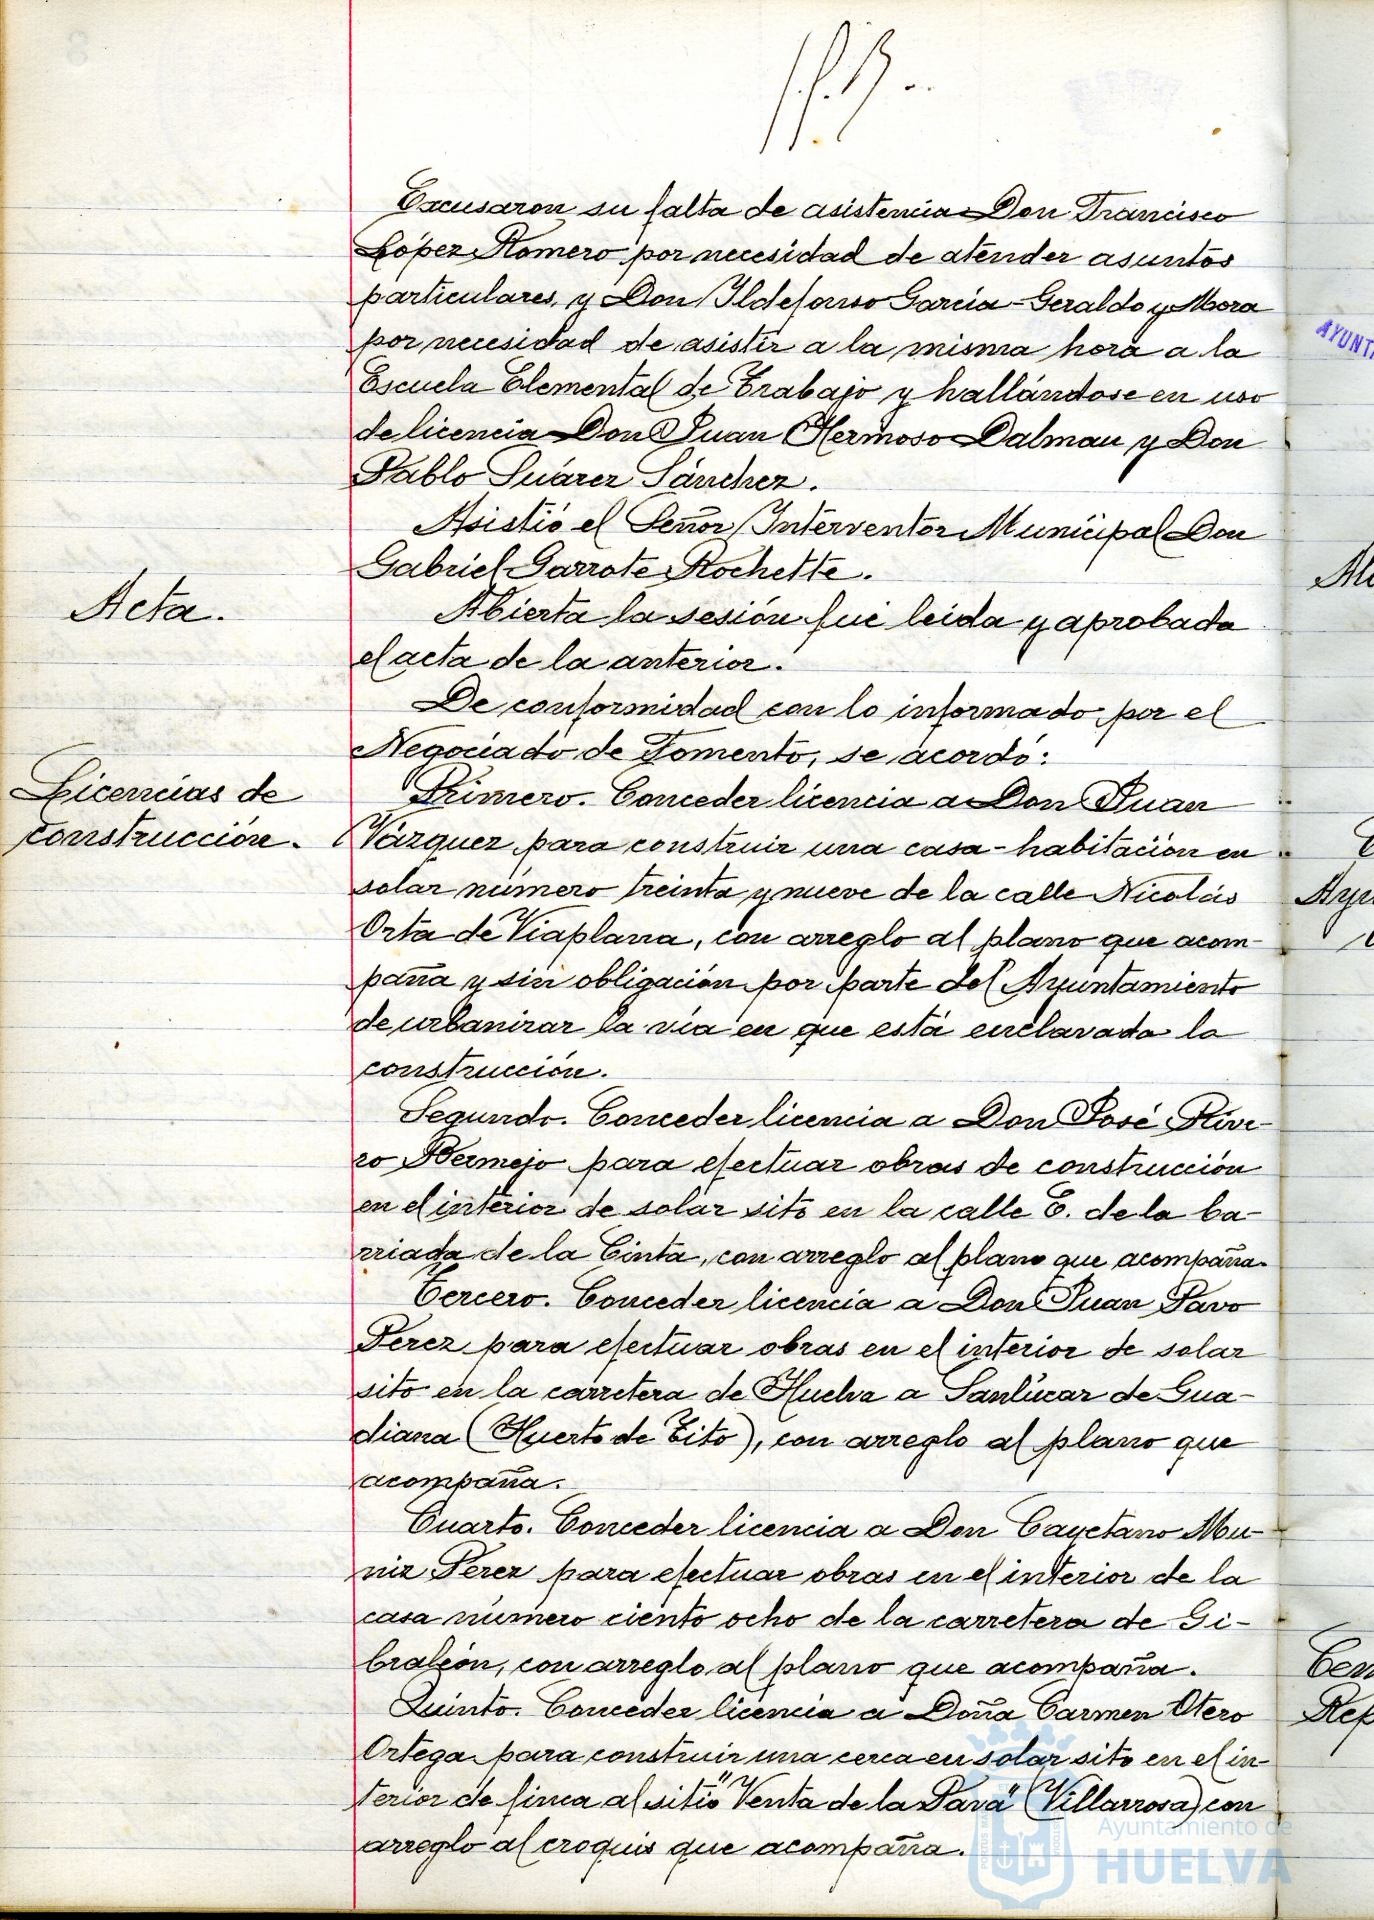 Excusaron su falta de asistencia Don Francisco
López Romero por necesidad de atender asuntos
particulares, y Don Ildefonso García-Geraldo y Mora
por necesidad de asistir a la misma hora a la
Escuela Elemental de Trabajo y hallándose en uso
de licencia Don Juan Hermoso Dalmau y Don
Pablo Suárez Sánchez.
Asistió el Señor Interventor Municipal Don
Gabriel Garrote Rochette.
Acta.
Abierta la sesión fué leida y aprobada
el acta de la anterior.
De conformidad con lo informado por el
Negociado de Fomento, se acordó:
Licencias de
construcción.
Primero. Conceder licencia a Don Juan
Vázquez para construir una casa-habitación en
solar número treinta y nueve de la calle Nicolás
Orta de Viaplana, con arreglo al plano que acom-
paña y sin obligación por parte del Ayuntamiento
de urbanizar la vía en que está enclavada la
construcción.
Segundo. Conceder licencia a Don José Rive-
ro Bermejo para efectuar obras de construcción
en el interior de solar sito en la calle E. de la ba-
rriada de la Cinta, con arreglo al plano que acompaña.
Tercero. Conceder licencia a Don Juan Pavo
Perez para efectuar obras en el interior de solar
sito en la carretera de Huelva a Sanlúcar de Gua-
diana (Huerto de Tito), con arreglo al plano que
acompaña.
Cuarto. Conceder licencia a Don Cayetano Mu-
niz Perez para efectuar obras en el interior de la
casa número ciento ocho de la carretera de Gi-
braleón, con arreglo al plano que acompaña.
Quinto. Conceder licencia a Doña Carmen Otero
Ortega para construir una cerca en solar sito en el in-
terior de finca al sitio "Venta de la Pava" (Villarrosa) con
arreglo al croquis que acompaña.
Ayuntamiento de
HUELVA